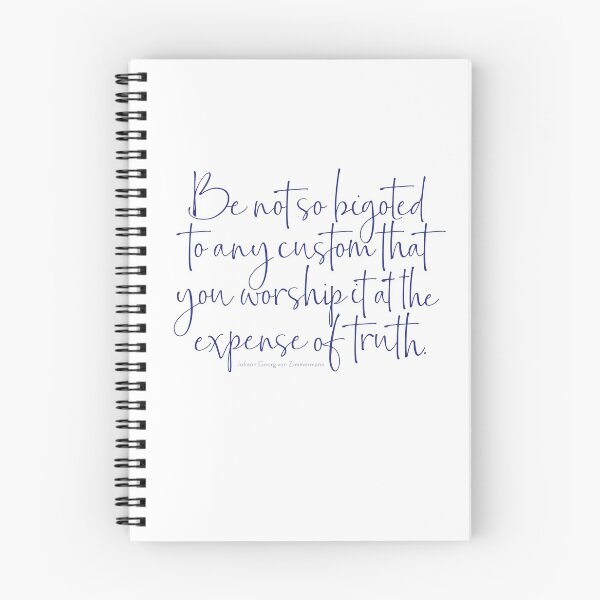 Be not so bigoted
to any custom that
you worship it at the
expense of truth.
Johann Georg von Zimmermann